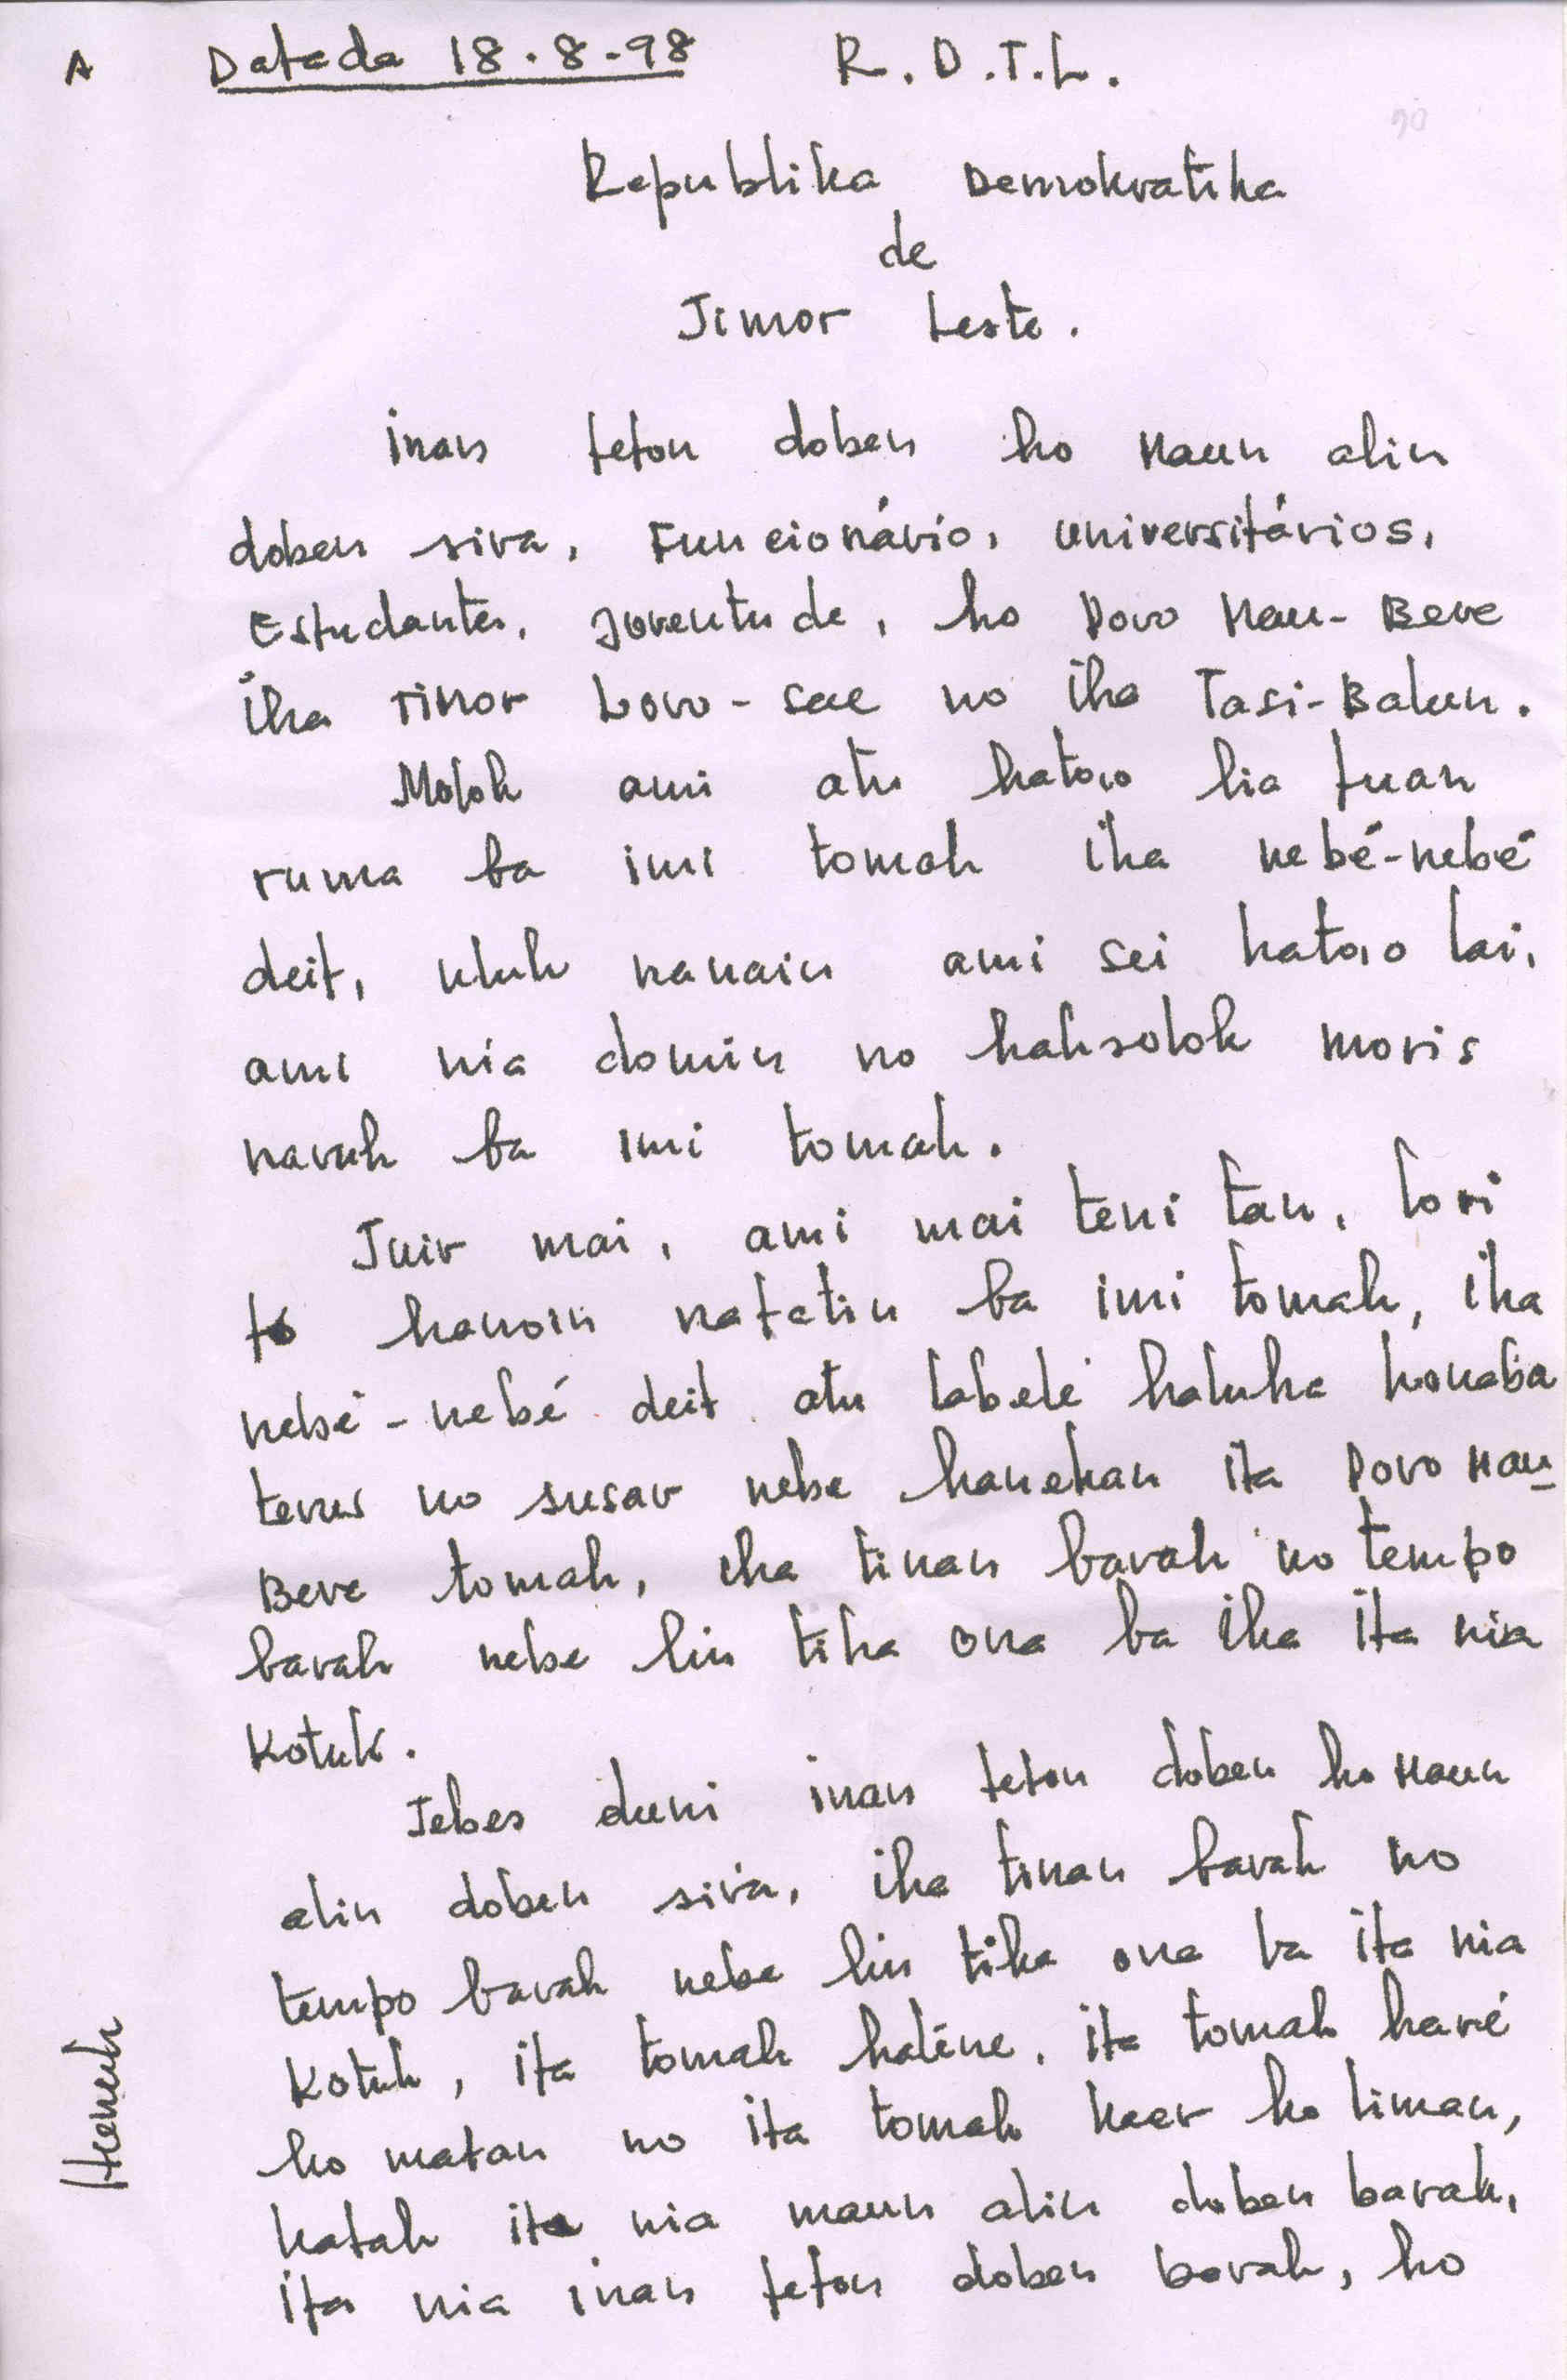 A Datada 18.8-98 R.D.T.L.
Republika Demokratika
de
Timor Leste.
Inan feton doben ho Maun alin
doben sira, Funcionário, universitários,
Estudantes, Joventude, ho Povo Mau-Bere
iha Timor Loro-sae no iha Tasi-Balun.
Molok ami atu hato'o lia fuan
ruma ba imi tomak iha nebé-nebé
deit, uluk nanain ami sei hato'o lai,
ami nia domin no haksolok moris
naruk ba imi tomak.
Tuir mai, ami mai teni tan, lori
to hanoin natetin ba imi tomak, iha
nebé-nebé deit atu labele haluha honaba
terus no susar nebe hanehan ita Povo Mau-
Bere tomak, iha tinan barak no tempo
barak nebe liu tiha ona ba iha ita nia
Kotuk.
Tebes duni inan feton doben ho Maun
alin doben sira, iha tinan barak no
tempo barak nebe liu tiha ona ba ita nia
Kotuk, ita tomak haténe, ita tomak haré
ho matan no ita tomak kaer ho liman,
katak ita nia maun alin doben barak,
ita nia inan feton doben barak, ho